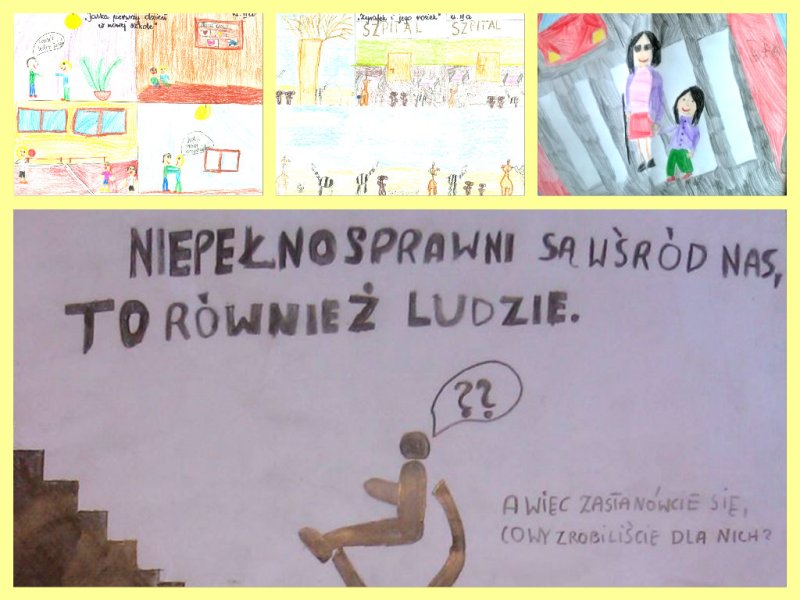 "Jaśka pierwszy dzień
w nowej szkole"
"Żyrafek i jego rożek" kl. III a
SZPITAL SZPITAL
NIEPEŁNOSPRAWNI SĄ WŚRÓD NAS,
TO RÓWNIEŻ LUDZIE.
??
A WIĘC ZASTANÓWCIE SIĘ,
CO WY ZROBILIŚCIE DLA NICH?